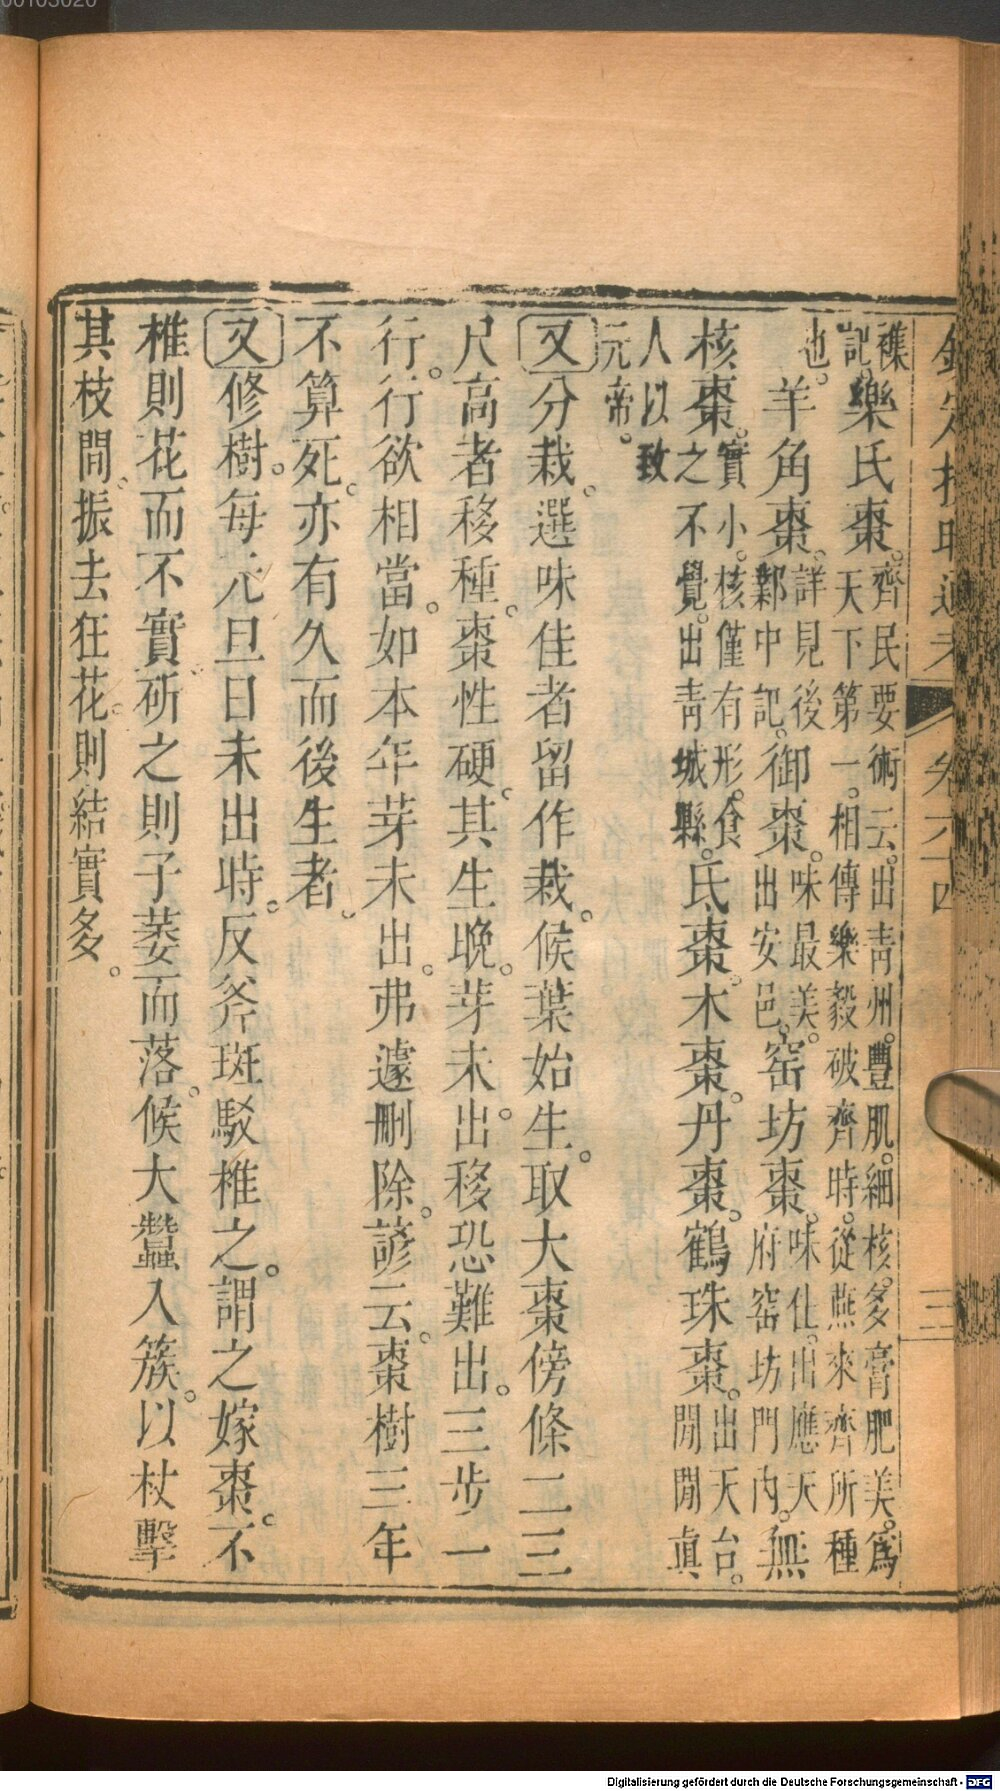 00103020
欽定授時通考 卷六十四 三
襍記。樂氏棗。齊民要術云。出青州。豐肌。細核。多膏肥美。為天下第一。相傳樂毅破齊時。從燕來齊所種
也。羊角棗。詳見後鄴中記。御棗。味最美。出安邑。窑坊棗。味佳。出應天府窑坊門內。無
核棗。實小。核僅有形。食之不覺。出青城縣。氐棗。木棗。丹棗。鶴珠棗。出天台。閒閒真
人以致元帝。
又分栽。選味佳者留作栽。候葉始生。取大棗傍條二三
尺高者移種。棗性硬。其生晚。芽未出。移恐難出。三步一
行。行欲相當。如本年芽未出。弗遽刪除。諺云。棗樹三年
不算死。亦有久而後生者。
又修樹。每元旦日未出時。反斧斑駁椎之。謂之嫁棗。不
椎則花而不實。斫之則子萎而落。候大蠶入簇。以杖擊
其枝間。振去狂花。則結實多。
Digitalisierung gefördert durch die Deutsche Forschungsgemeinschaft - DFG